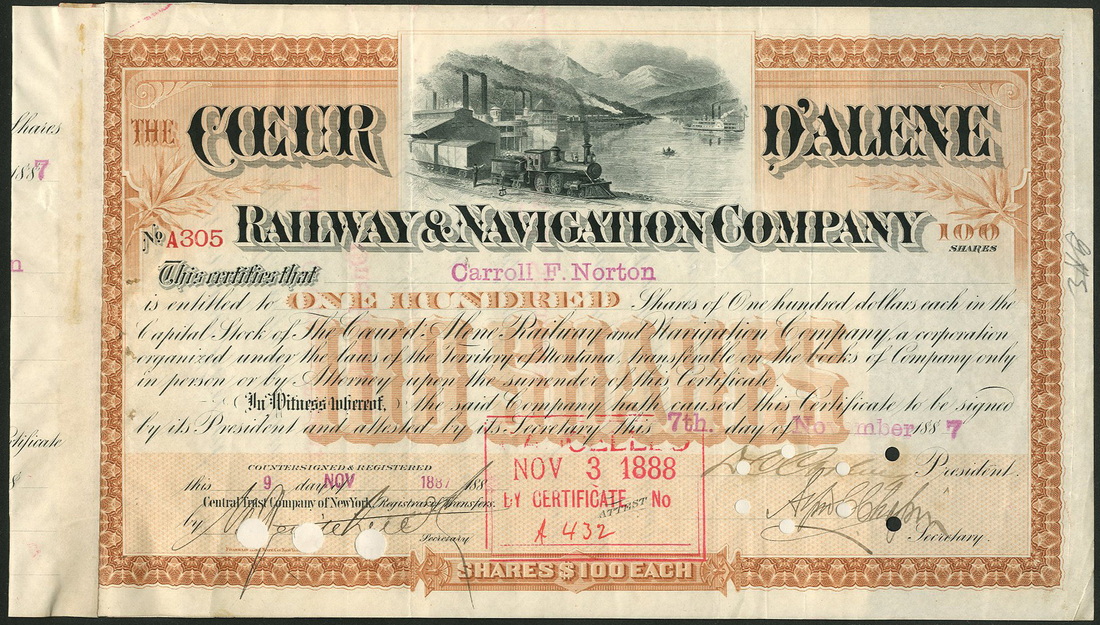 Shares
1887
n
Certificate
THE CŒUR D'ALENE
RAILWAY & NAVIGATION COMPANY
No A305
100
SHARES
This certifies that Carroll F. Norton
is entitled to ONE HUNDRED Shares of One hundred dollars each in the
Capital Stock of The Cœur d'Alene Railway and Navigation Company, a corporation
organized under the laws of the Territory of Montana, transferable on the books of Company only
in person or by Attorney upon the surrender of this Certificate.
100 SHARES
In Witness whereof, the said Company hath caused this Certificate to be signed
by its President and attested by its Secretary this 7th. day of No mber 1887
COUNTERSIGNED & REGISTERED
this 9 day of NOV 1887 188
Central Trust Company of New York, Registrar of Transfers.
by
Secretary
NOV 3 1888
BY CERTIFICATE No
A 432
ATTEST
President.
Secretary.
SHARES $100 EACH